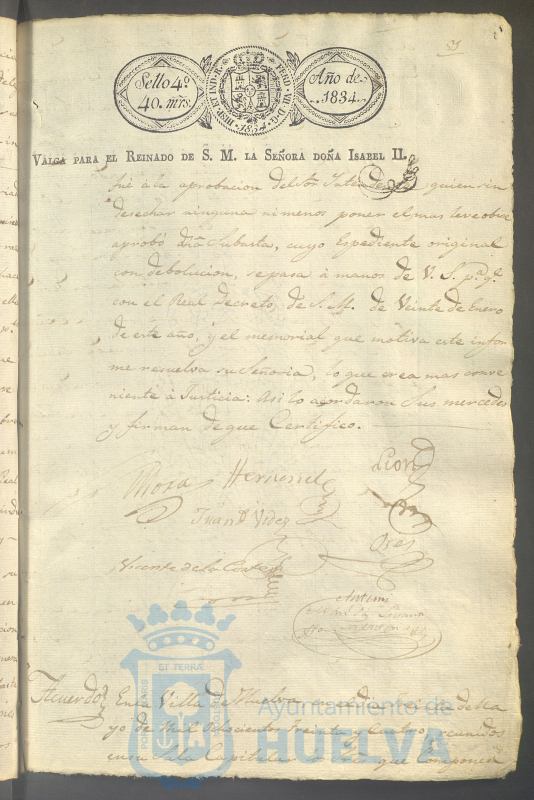 51
Sello 4º
40. mrs.
HISP. ET IND. R. FERD. VII. D. G. 1834
Año de
1834.
VALGA PARA EL REINADO DE S. M. LA SEÑORA DOÑA ISABEL II.
fué á la aprobacion del Sor. Intendente quien sin
desechar ninguna ni menos poner el mas leve obice
aprobó dha Subasta, cuyo Espediente original
con debolucion, se pasa á manos de V. S. pa. qe.
con el Real Decreto de S. M. de Veinte de Enero
de este año, y el memorial que motiva este infor
me resuelva su Señoria, lo que crea mas conve
niente á Justicia: Asi lo acordaron Sus mercedes
y firman de que Certifico.
Mora Hernand León
Juan
Vicente de la Corte
Acuerdo En la Villa de Huelva en diez y siete de Ma
yo de mil ochocientos treinta y cuatro, reunidos
en su Sala Capitular los Sres. que componen
PORTUS MARIS
ET TERRÆ
Ayuntamiento de
HUELVA